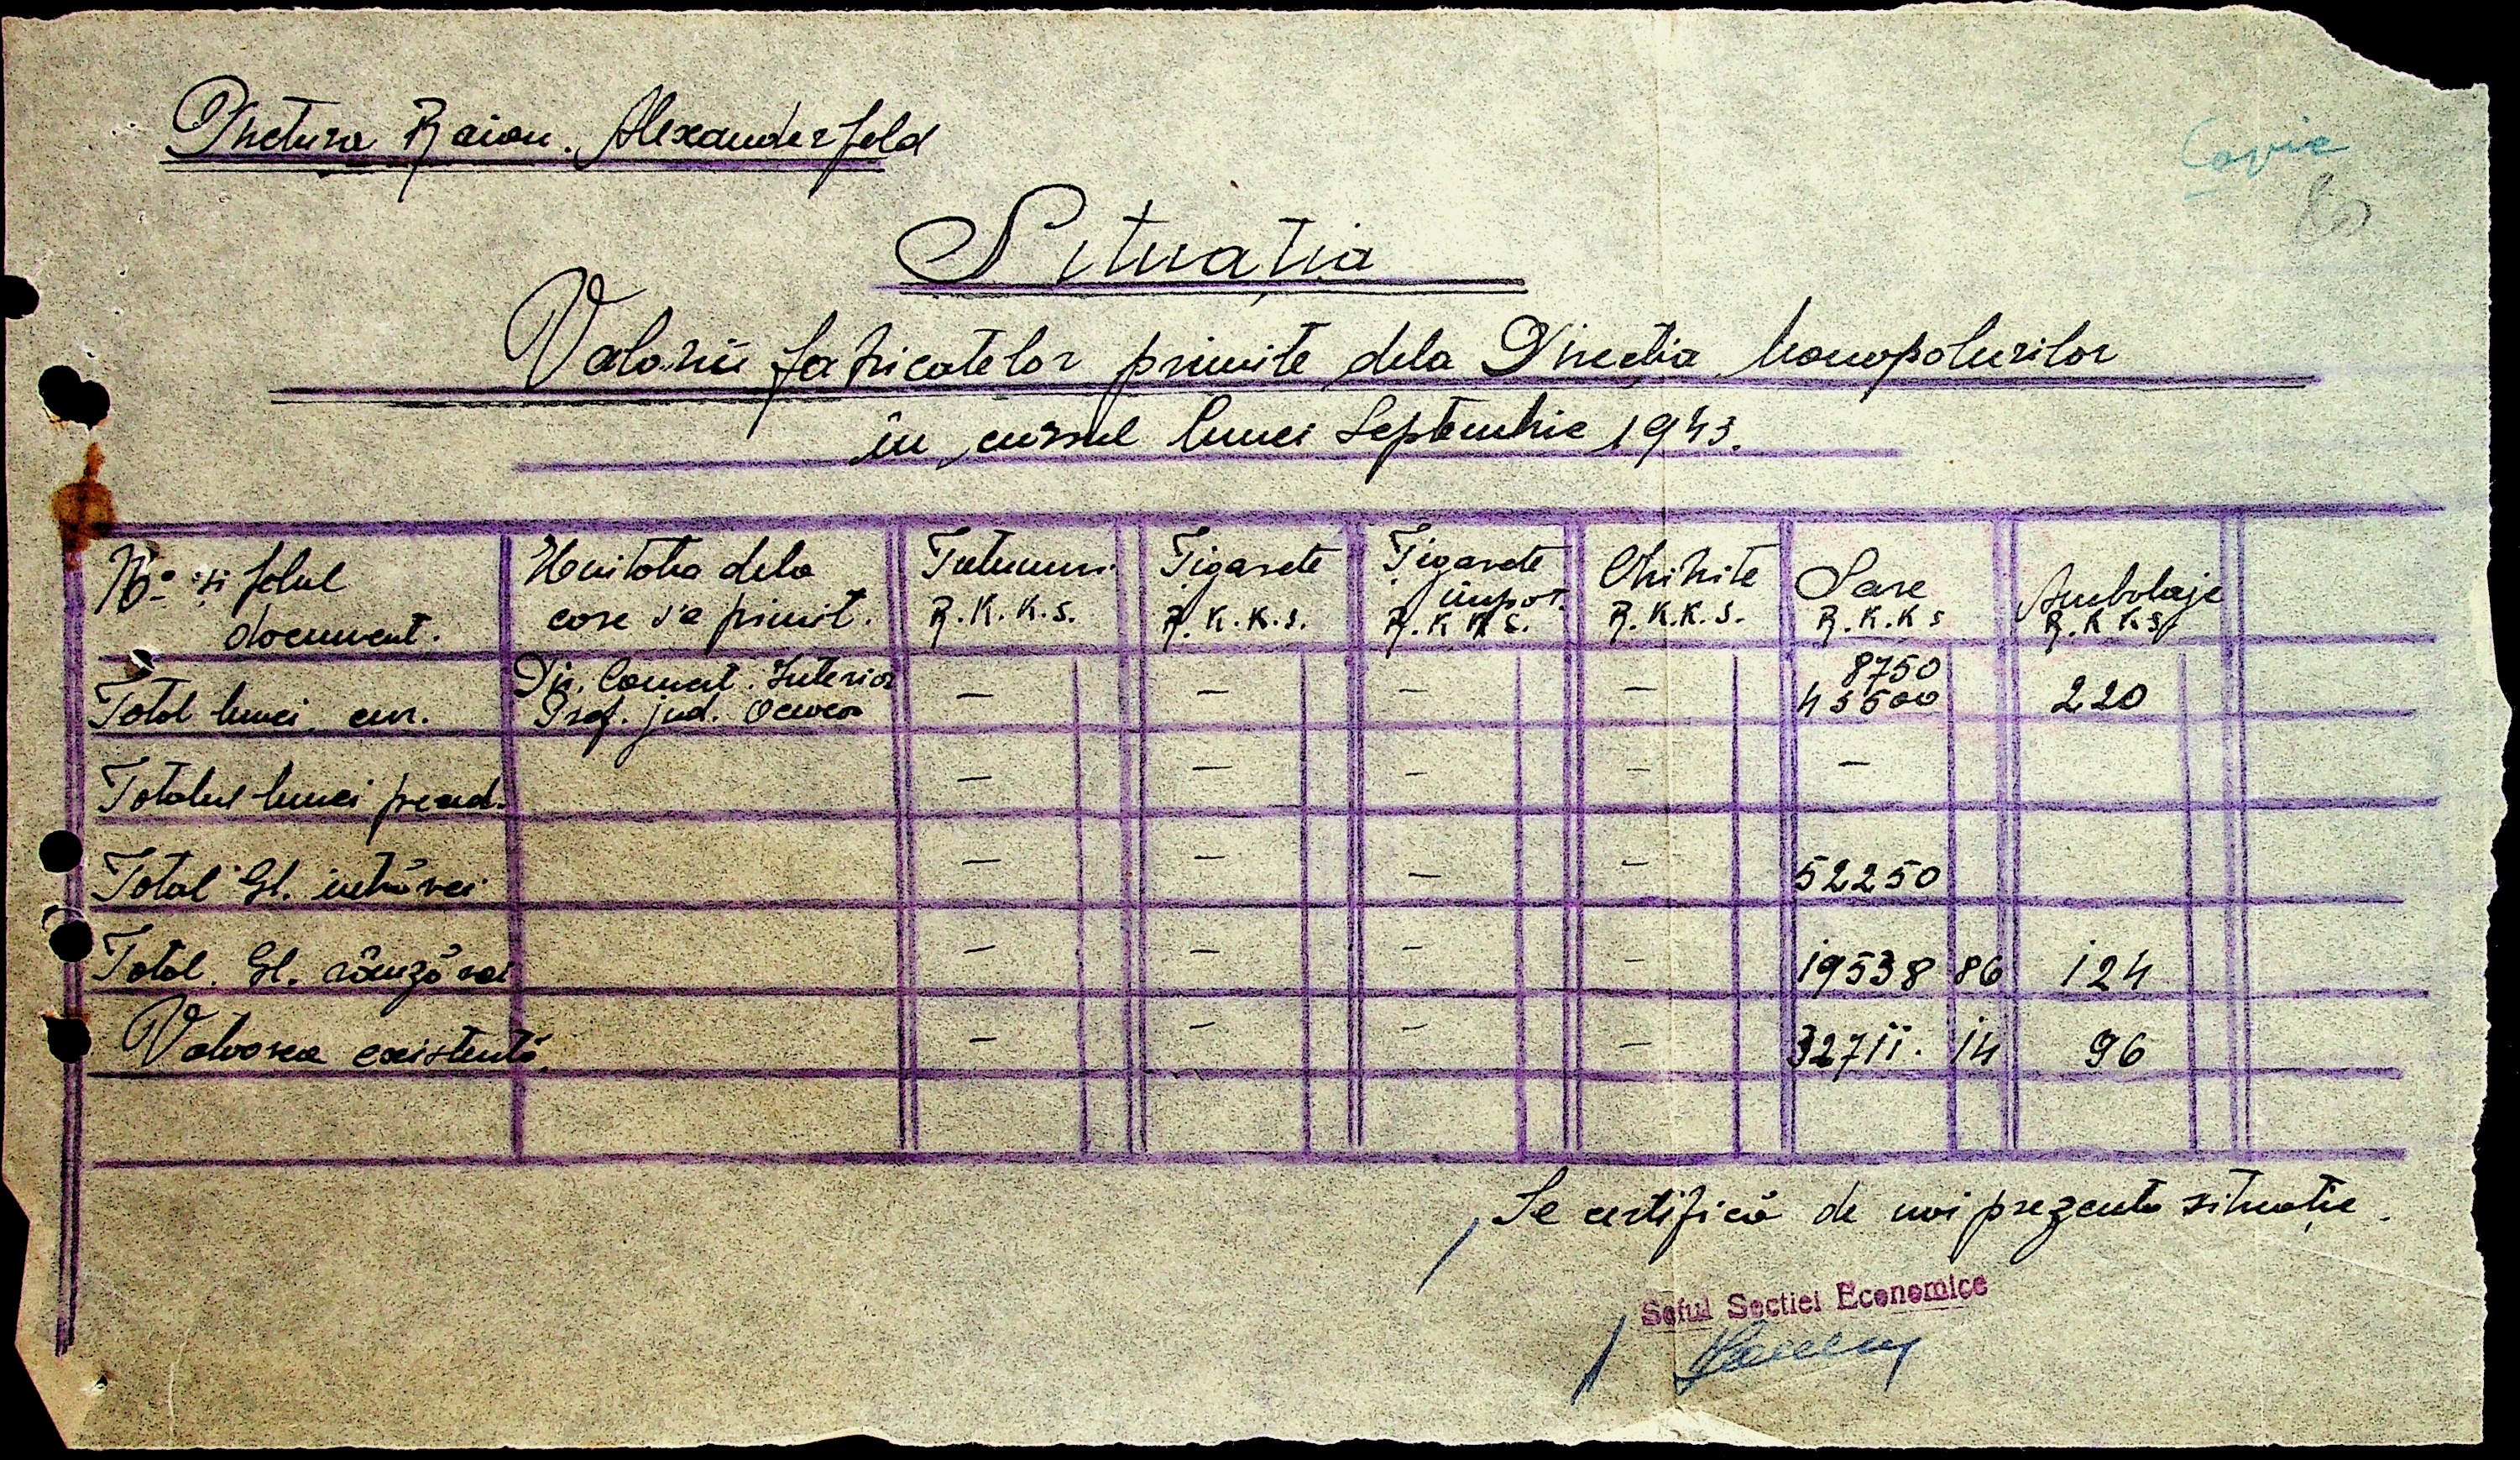 Pretura Raion. Alexanderfeld
Copie
Situația
Valorii fabricatelor primite dela Direcția Monopolurilor
în cursul lunei Septembrie 1943.
No și felul document.
Unitatea dela care s'a primit.
Tutunuri R.K.K.S.
Țigarete R.K.K.S.
Țigarete impor. R.K.K.S.
Chibrite R.K.K.S.
Sare R.K.K.S
Ambolaje R.K.K.S
Total lunei cur. Dir. Comert. Interior Pref. jud. Oceacov – – – – 8750 43500 220
Totalul lunei preced. – – – – –
Total Gl. intrărei – – – – 52250
Total. Gl. vânzărei – – – – 19538 86 124
Valoarea existentă. – – – – 32711. 14 96
Se certifică de noi prezenta situație.
Seful Sectiei Economice